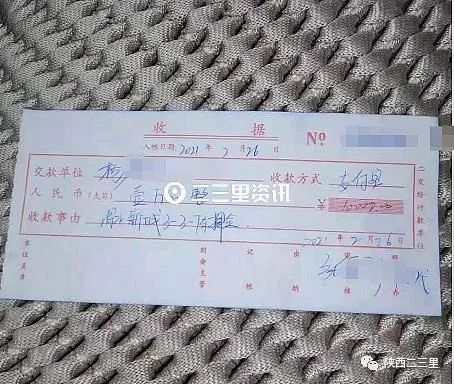 收 据 Nº
入帐日期: 2021 年 2 月 26 日
交款单位 杨 收款方式 支付宝
人民币(大写) 壹万 整 ¥ 10000.00
收款事由 新城3-3- 押金
2021 年 2 月 26 日
单位盖章 财会主管 记帐 出纳 审核 经办
二交给付款单位
二三里资讯
陕西二三里